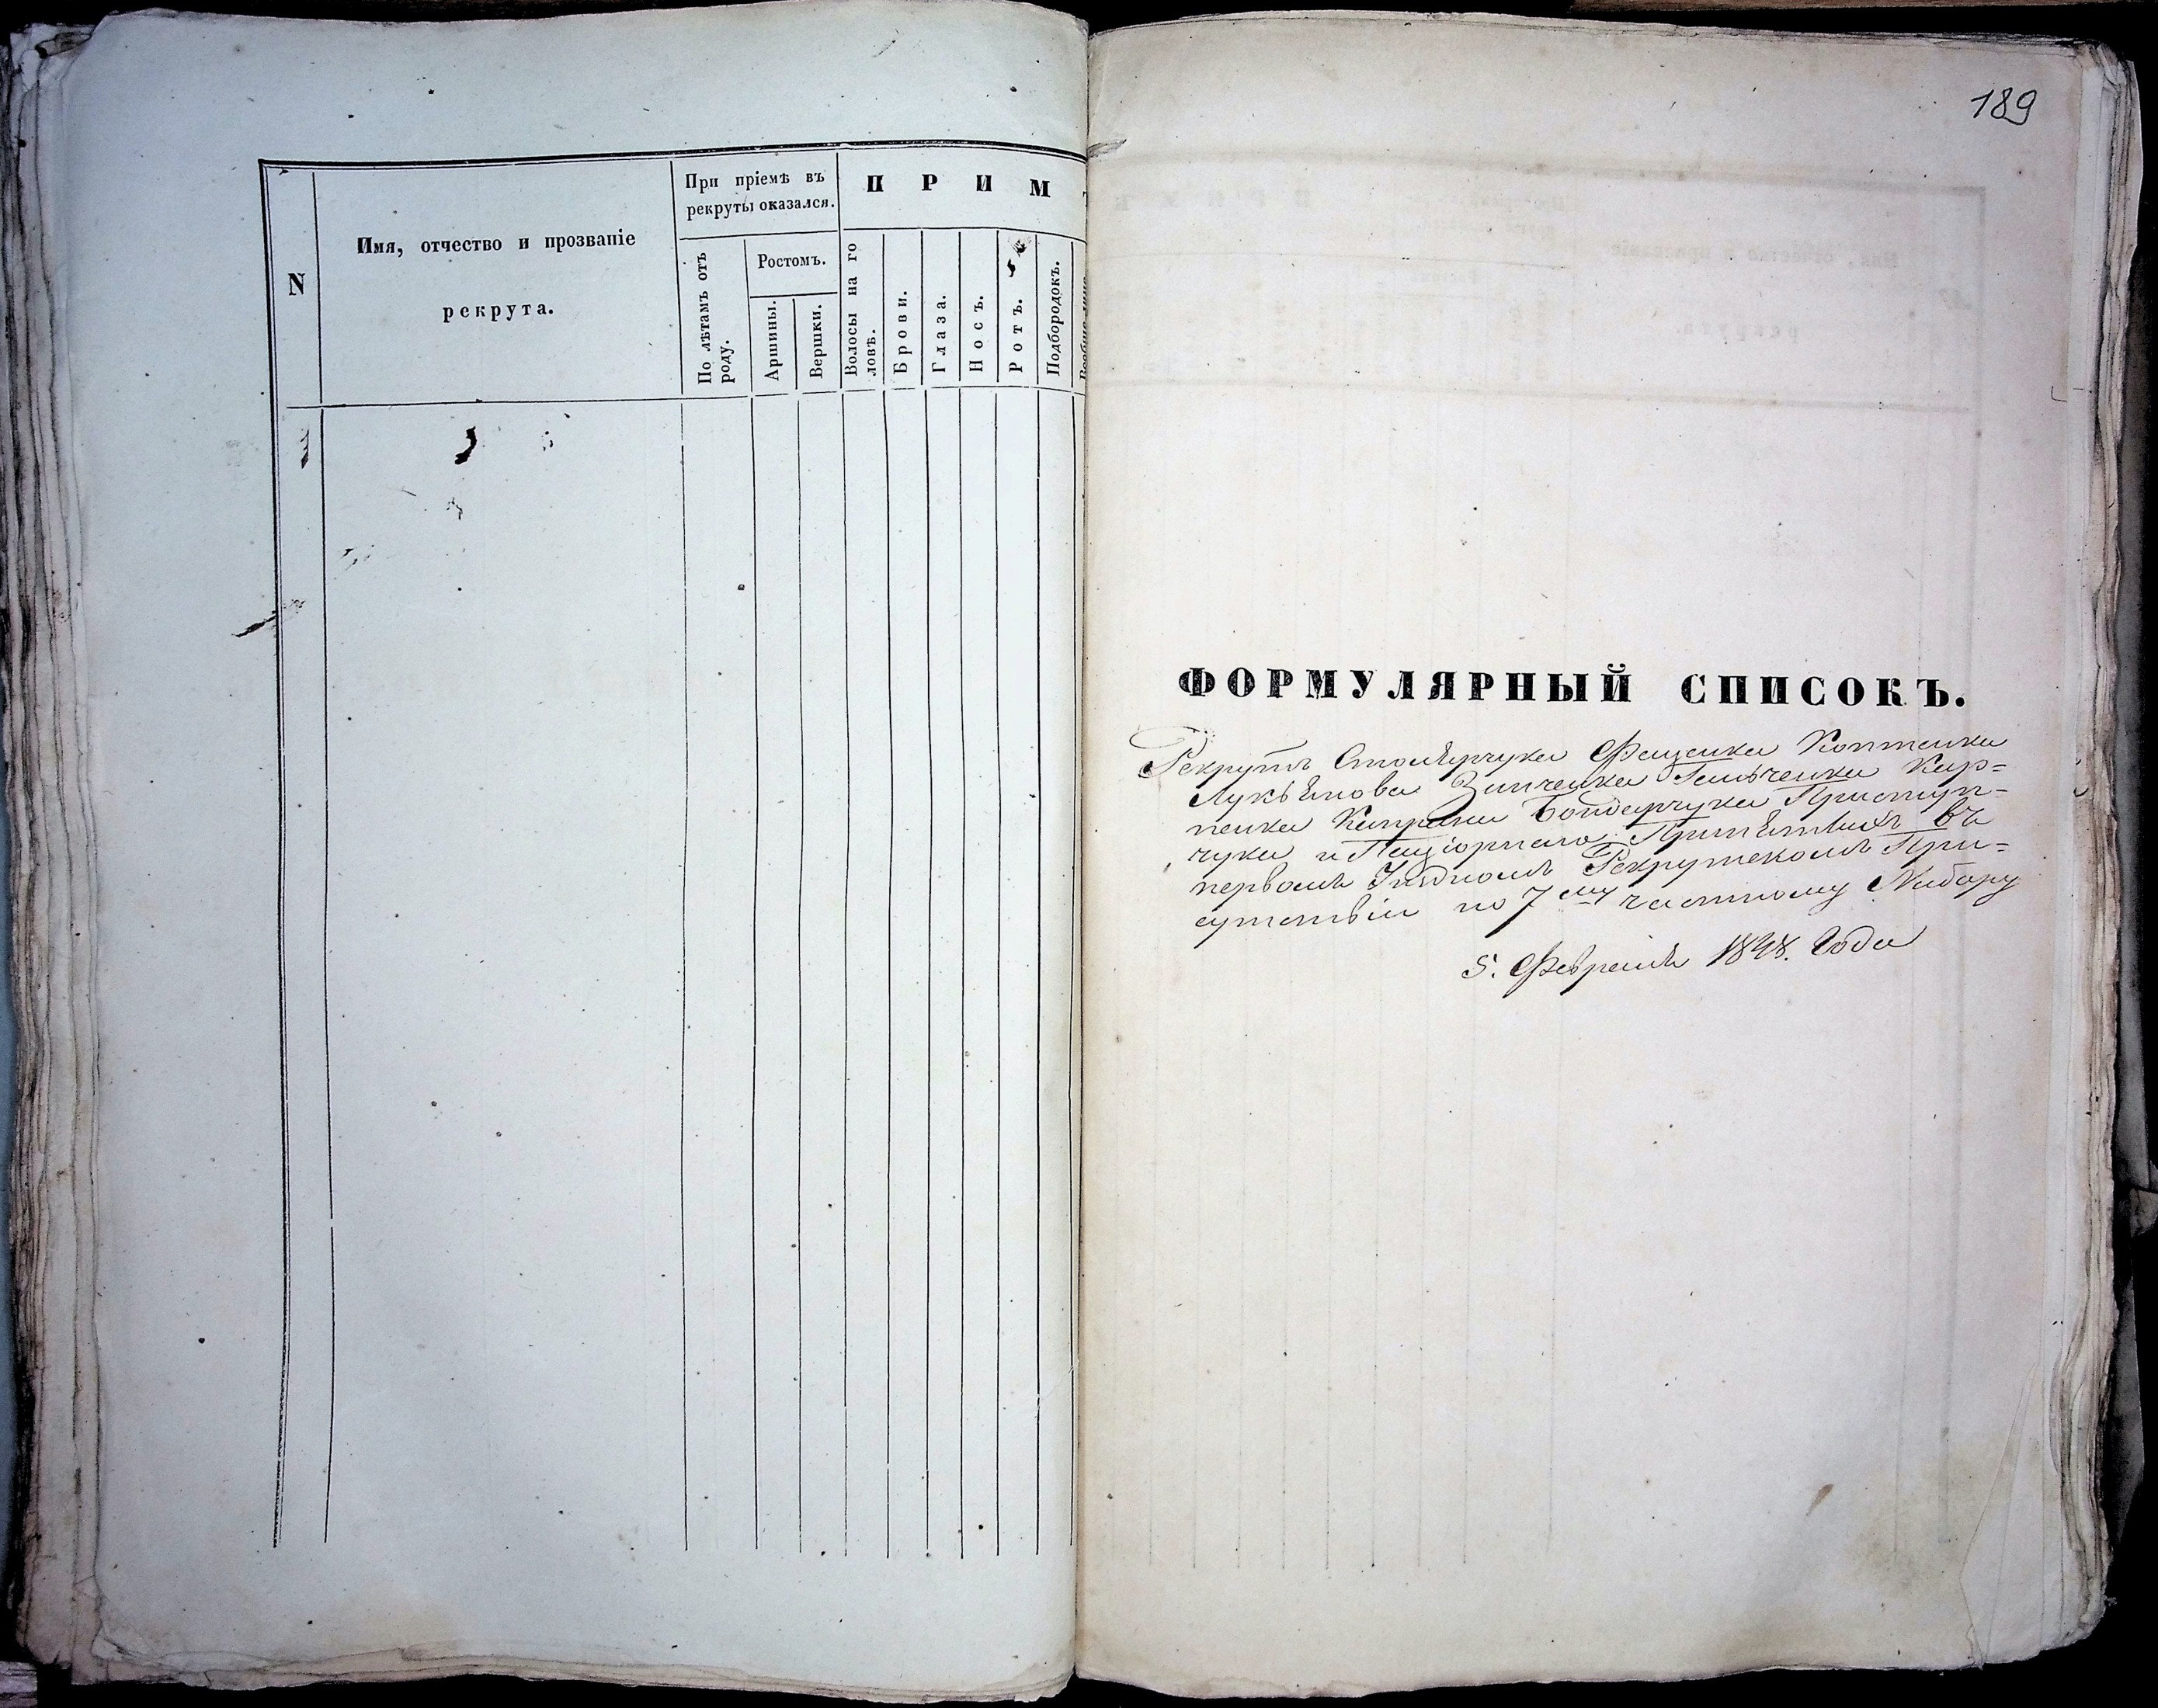 N
Имя, отчество и прозваніе
рекрута.
При пріемѣ въ
рекруты оказался.
По лѣтамъ отъ
роду.
Ростомъ.
Аршины.
Вершки.
П Р И М
Волосы на го
ловѣ.
Брови.
Глаза.
Носъ.
Ротъ.
Подбородокъ.
189
ФОРМУЛЯРНЫЙ СПИСОКЪ.
Рекрутъ Столярчука Фещенка Коптенка
Лукьянова Зинченка Гальченка Кар=
пенка Бондарчука Приступ=
чука и Принятыхъ въ
первомъ Уѣздномъ Рекрутскомъ При=
сутствіи по 7му частному Набору
5. Февраля 1848. Года